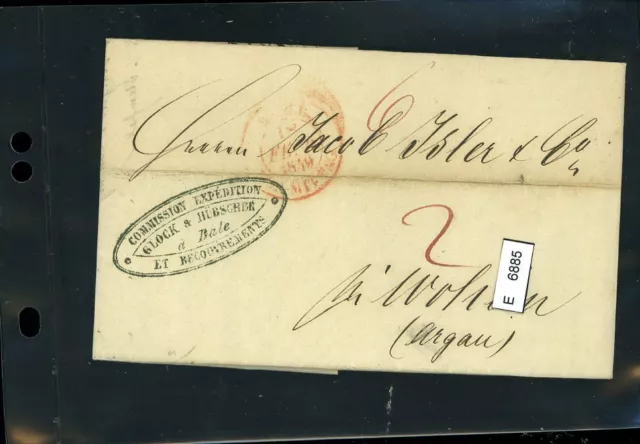 6
Herren Jacob Isler & Co
COMMISSION EXPÉDITION
GLOCK & HÜBSCHER
à Bale
ET RECOUVREMENTS
2
in Wohlen
(Argau)
E 6885